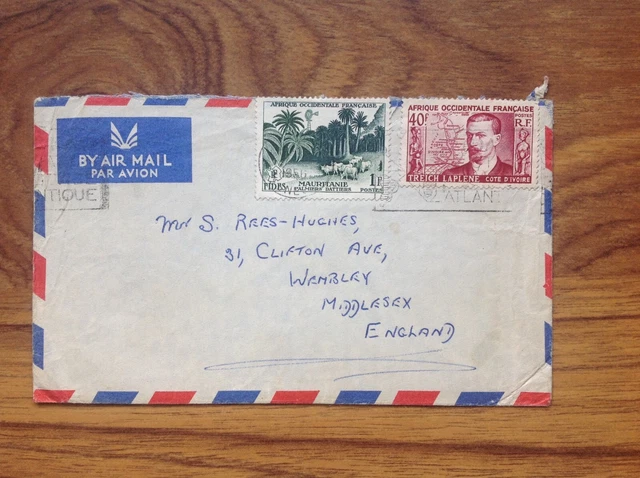 BY AIR MAIL
PAR AVION
AFRIQUE OCCIDENTALE FRANÇAISE
1F
FIDES
MAURITANIE
PALMIERS DATTIERS
POSTES
AFRIQUE OCCIDENTALE FRANÇAISE
40F
POSTES
R.F.
TREICH LAPLÈNE
CÔTE D'IVOIRE
TIQUE
ATLAN
S. REES-HUGHES,
31, CLIFTON AVE,
WEMBLEY
MIDDLESEX
ENGLAND